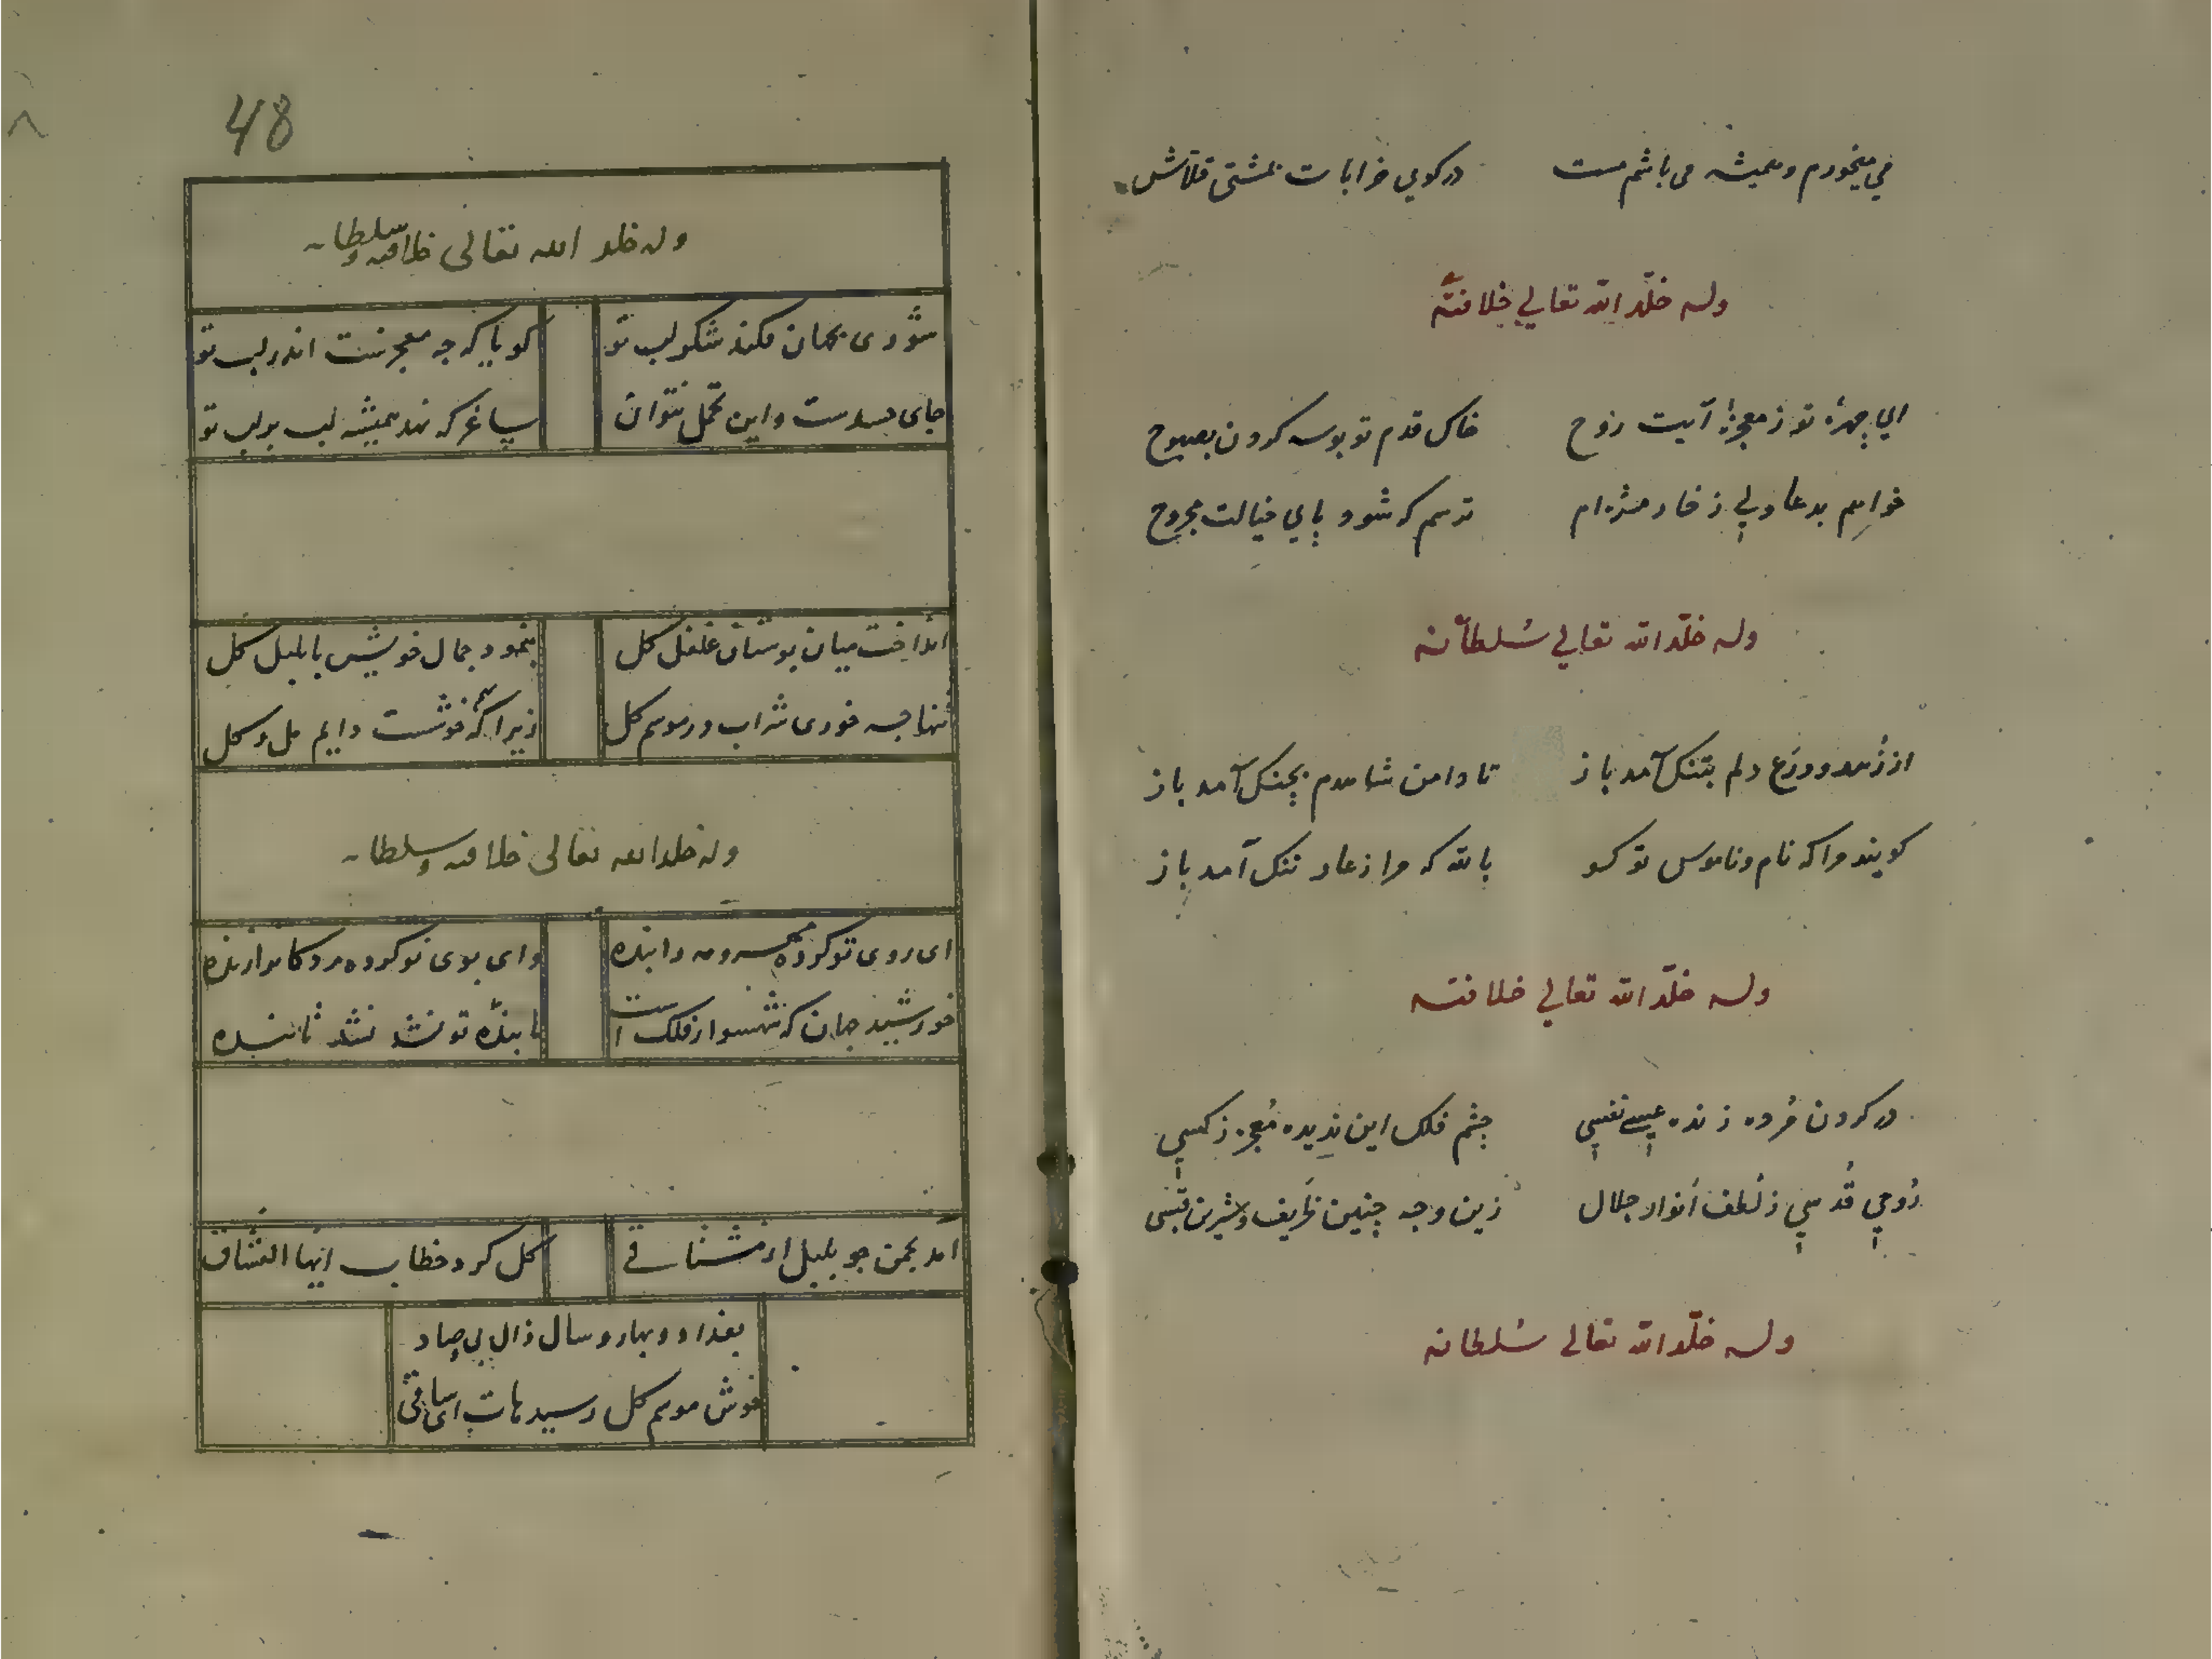 می میخورم و همیشه می باشم مست در کوی خرابات بمشتی قلاش
وله خلّد الله تعالي خلافتهٗ
اي چهرهٔ تو ز معجزهٔ آیت روح خاک قدم تو بوسه کردن بصبوح
خواهم بدعا ولي ز خار مژه ام ترسم که شود پاي خیالت مجروح
وله خلّد الله تعالي سُلطانه
از زُهد و ورَع دلم بتنک آمد باز تا دامن شاهدم بچنک آمد باز
کویند مرا که نام و ناموس تو کو بالله که مرا ز عار ننک آمد باز
وله خلّد الله تعالي خلافته
در کردن مُرده زنده عیسے نفسي چشم فلک این ندیده مُعجز ز کسي
رُوحي قُدسي ز لُطف اَنوار جلال زین وجه چنین ظَریف و شیرین
وله خلّد الله تعالی سُلطانه
48
وله خلد الله تعالی خلافته و سلطانه
شوری بجهان فکند شکر لب تو کویا که چه معجزست اندر لب تو
جای حسدست و این تحمل نتوان ساغر که نهد همیشه لب بر لب تو
انداخت میان بوستان غلغل کل بنمود جمال خویش با بلبل کل
تنها چه خوری شراب در موسم کل زیرا که خوشست دایم مل و کل
وله خلد الله تعالی خلافته و سلطانه
ای روی تو کرده مهر و مه را بنده وای بوی تو کرده مردکانرا زنده
خورشید جهان که شهسوار فلک است تا بندهٔ تو نشد نشد تابنده
آمد بچمن چو بلبل از مشتاقی کل کرد خطاب ایها العشاق
بغداد و بهار و سال ذال بی صاد
خوش موسم کل رسید هات ای ساقی